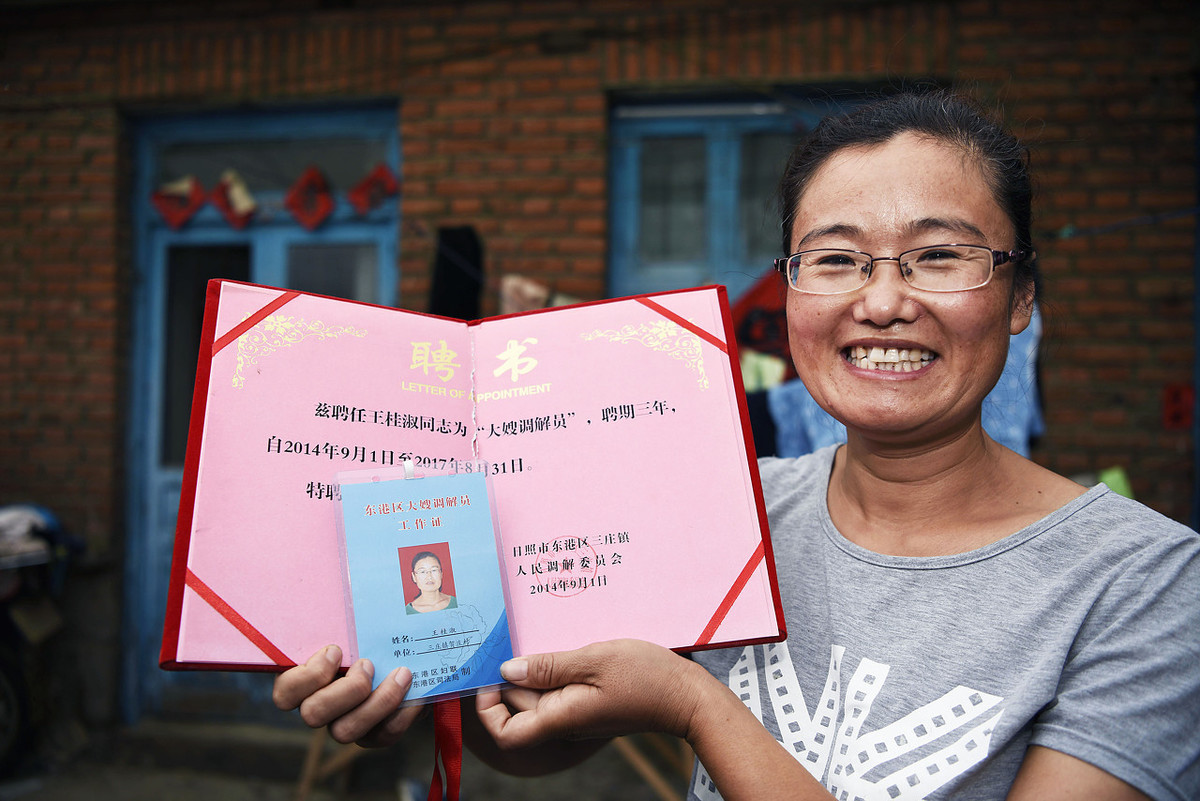 聘书
LETTER OF APPOINTMENT
兹聘任王桂淑同志为“大嫂调解员”，聘期三年，
自2014年9月1日至2017年8月31日。
特聘
日照市东港区三庄镇
人民调解委员会
2014年9月1日
东港区大嫂调解员
工作证
姓名：王桂淑
单位：三庄镇
东港区妇联
东港区司法局 制